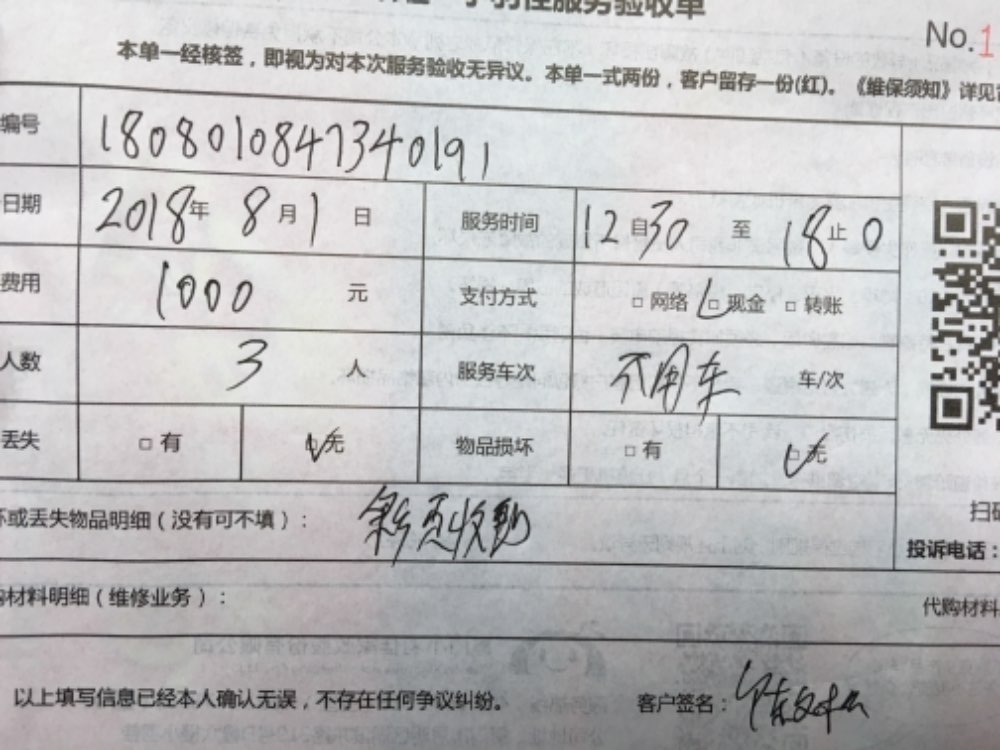 性服务验收单
No.1
本单一经核签，即视为对本次服务验收无异议。本单一式两份，客户留存一份(红)。《维保须知》详见
编号 1808010847340191
日期 2018年 8月1日 服务时间 12自30 至 18止0
费用 1000 元 支付方式 □网络 □现金 □转账
人数 3 人 服务车次 不用车 车/次
丢失 □有 □无 物品损坏 □有 □无
坏或丢失物品明细（没有可不填）： 余款收到
扫码
投诉电话：
购材料明细（维修业务）： 代购材料
以上填写信息已经本人确认无误，不存在任何争议纠纷。 客户签名：